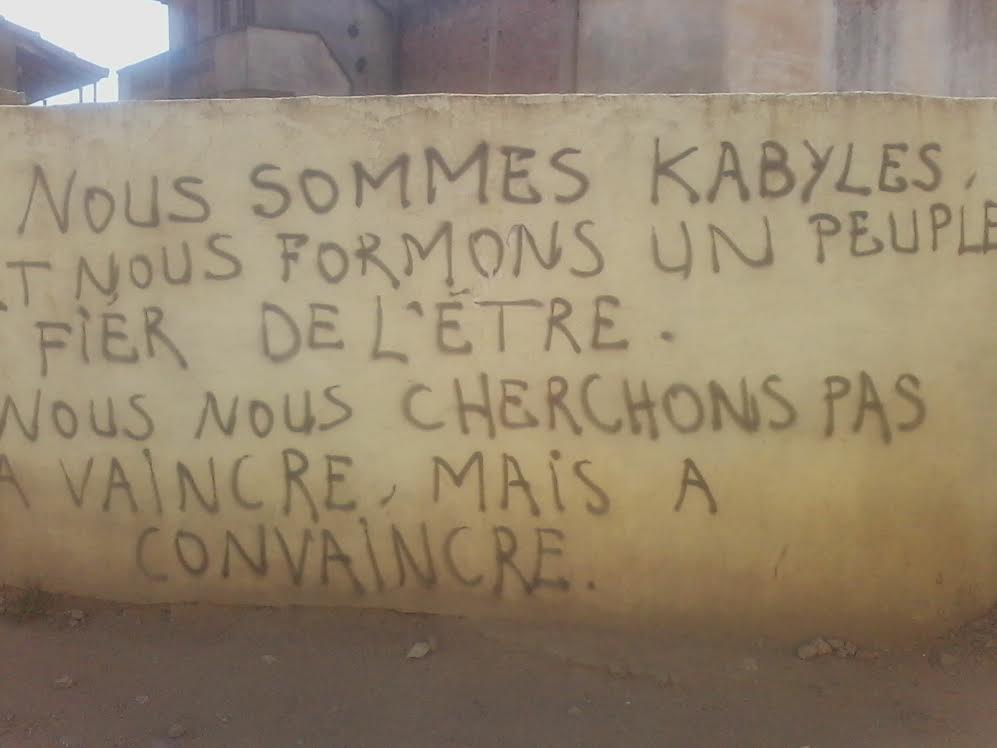 NOUS SOMMES KABYLES,
ET NOUS FORMONS UN PEUPLE
FIÉR DE L'ÊTRE.
NOUS NOUS CHERCHONS PAS
A VAINCRE, MAIS A
CONVAINCRE.